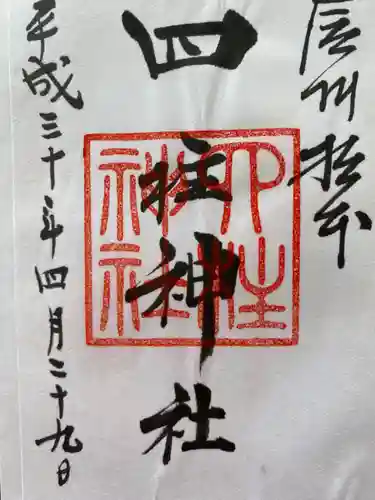 信州松本
四柱神社
四柱神社
平成三十年四月二十九日